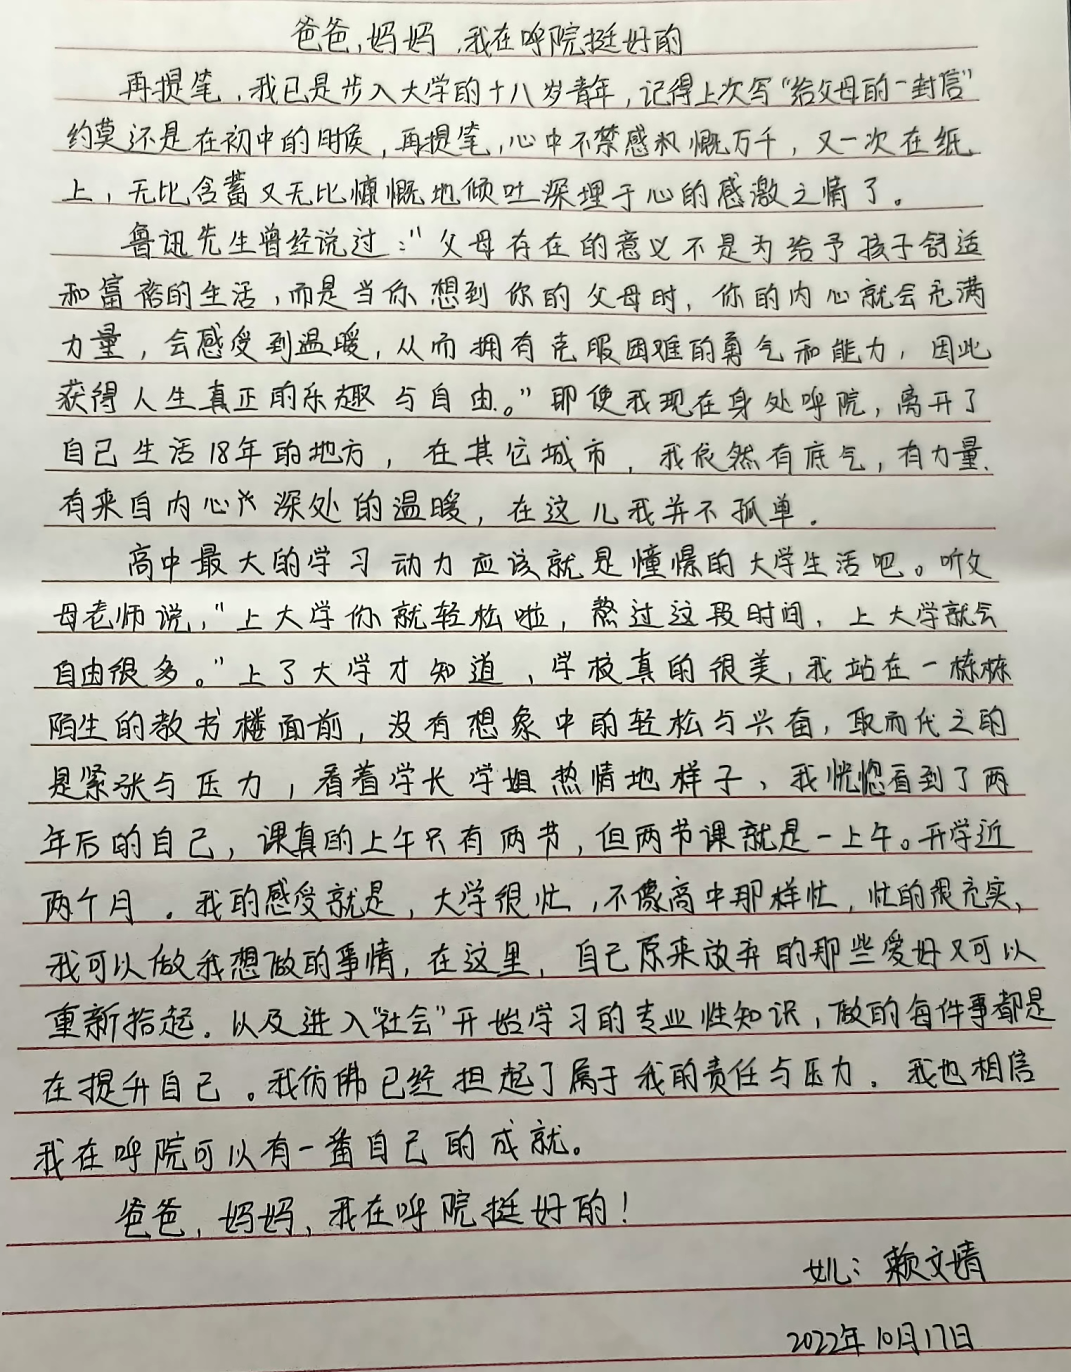 爸爸,妈妈,我在呼院挺好的
再提笔,我已是步入大学的十八岁青年,记得上次写“给父母的一封信”
约莫还是在初中的时侯,再提笔,心中不禁感和慨万千,又一次在纸
上,无比含蓄又无比慷慨地倾吐深埋于心的感激之情了。
鲁迅先生曾经说过:“父母存在的意义不是为给予孩子舒适
和富裕的生活,而是当你想到你的父母时,你的内心就会充满
力量,会感受到温暖,从而拥有克服困难的勇气和能力,因此
获得人生真正的乐趣与自由。”即使我现在身处呼院,离开了
自己生活18年的地方,在其它城市,我依然有底气,有力量、
有来自内心深处的温暖,在这儿我并不孤单.
高中最大的学习动力应该就是憧憬的大学生活吧。听父
母老师说,“上大学你就轻松啦,熬过这段时间,上大学就会
自由很多。”上了大学才知道,学校真的很美,我站在一栋栋
陌生的教书楼面前,没有想象中的轻松与兴奋,取而代之的
是紧张与压力,看着学长学姐热情地样子、我恍惚看到了两
年后的自己,课真的上午只有两节,但两节课就是一上午。开学近
两个月。我的感受就是,大学很忙,不像高中那样忙,忙的很充实、
我可以做我想做的事情,在这里,自己原来放弃的那些爱好又可以
重新拾起.以及进入“社会”开始学习的专业性知识,做的每件事都是
在提升自己。我仿佛已经担起了属于我的责任与压力.我也相信
我在呼院可以有一番自己的成就。
爸爸,妈妈,我在呼院挺好的!
女儿:赖文婧
2022年10月17日